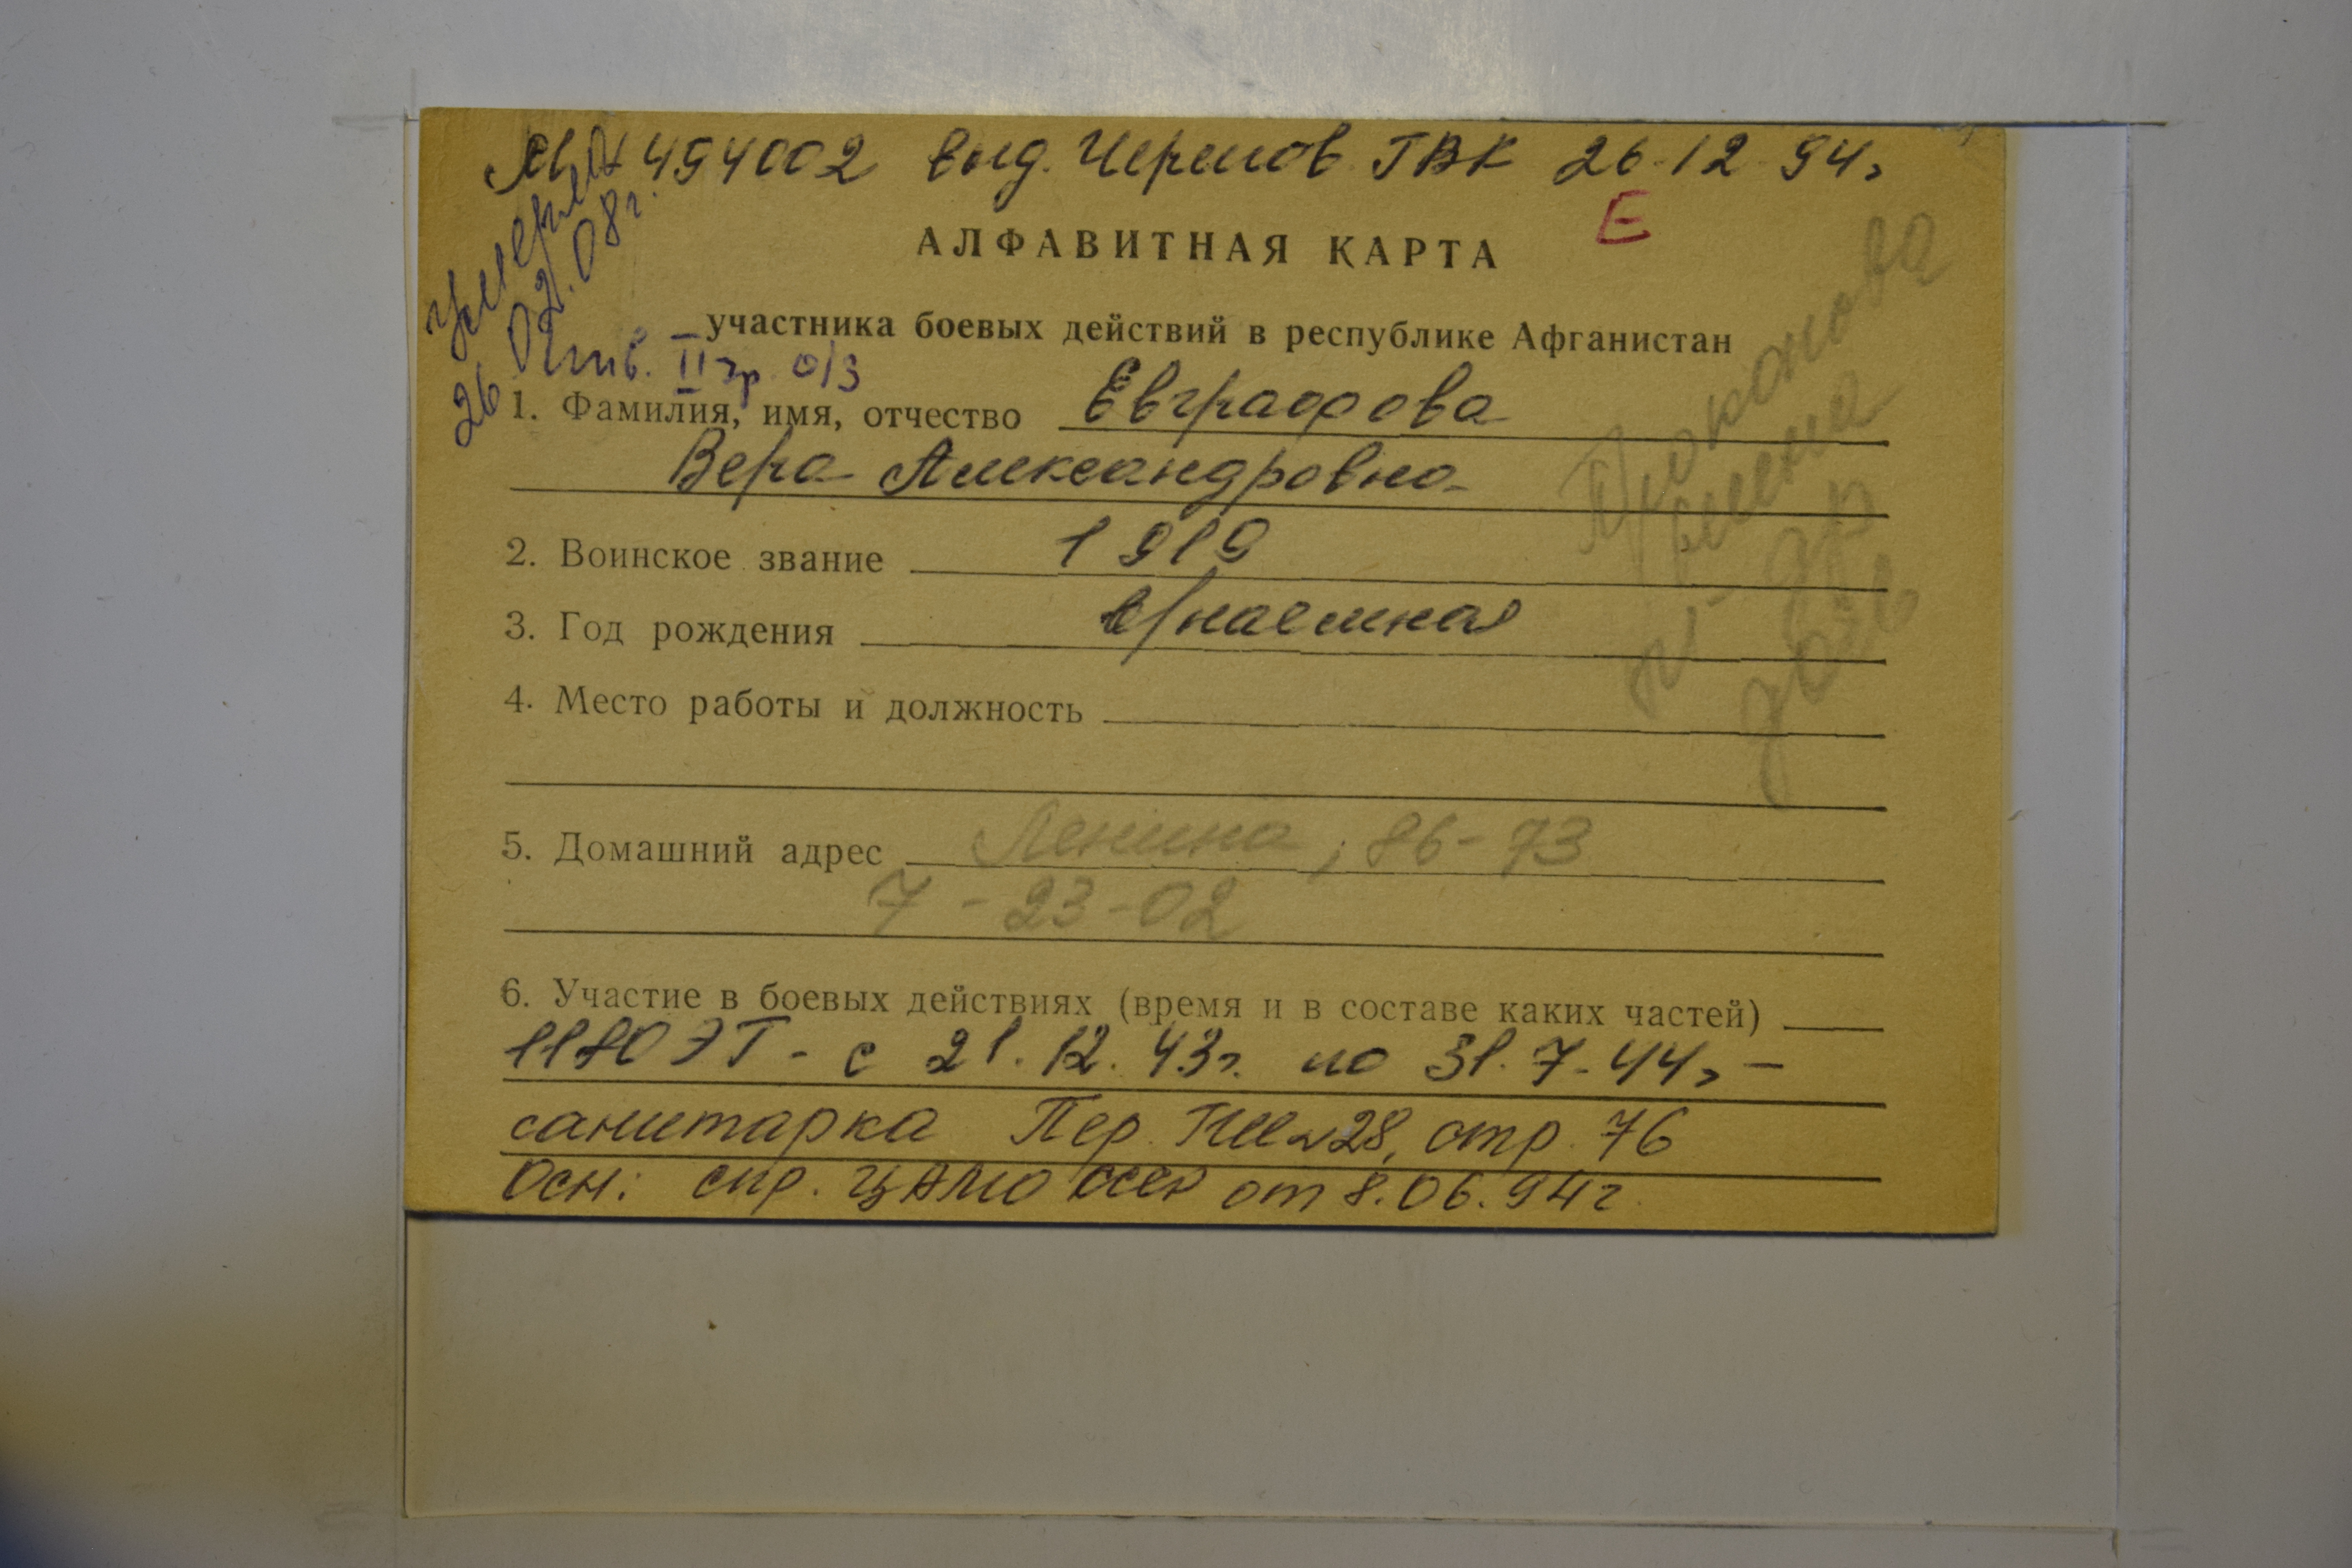 494002 выд. Черепов. ГВК 26.12.94г
умерла
26.02.08г.
Е
АЛФАВИТНАЯ КАРТА
участника боевых действий в республике Афганистан
инв. II гр. о/з
1. Фамилия, имя, отчество Евграфова
Вера Александровна
2. Воинское звание 1919
3. Год рождения в/наемная
4. Место работы и должность
5. Домашний адрес Ленина, 86-73
7-23-02
6. Участие в боевых действиях (время и в составе каких частей)
ЭГ - с 21.12.43г. по 31.7.44г -
санитарка Пер. №28, стр. 76
Осн: спр. ЦАМО от 8.06.94г
дочь